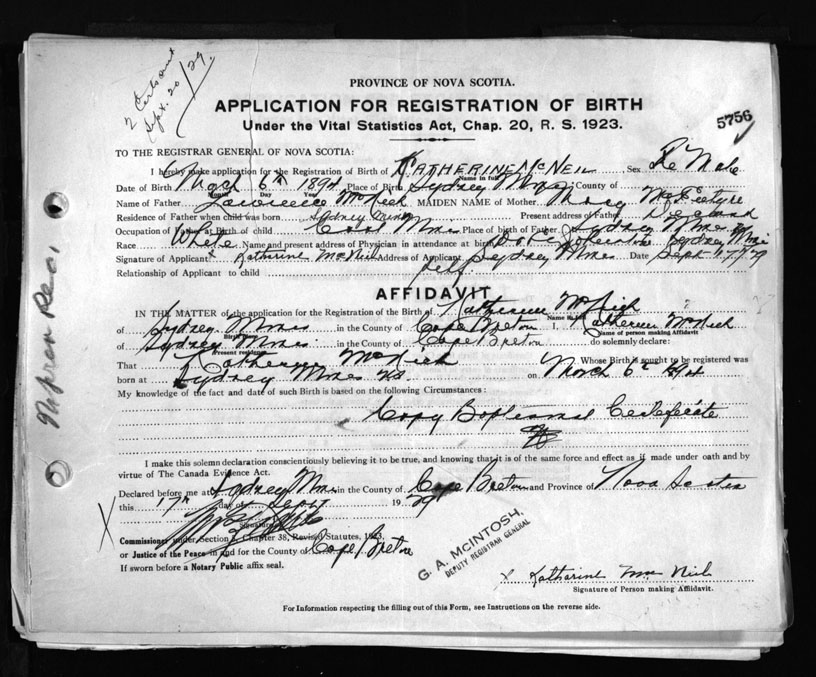 2 Certs sent
Sept. 20/29.
PROVINCE OF NOVA SCOTIA.
APPLICATION FOR REGISTRATION OF BIRTH
Under the Vital Statistics Act, Chap. 20, R. S. 1923.
5756
TO THE REGISTRAR GENERAL OF NOVA SCOTIA:
I hereby make application for the Registration of Birth of KATHERINE MCNEIL Sex Female
Name in full
Date of Birth March 6th 1894 Place of Birth Sydney Mines County of
Name of Father Lawrence McNeil MAIDEN NAME of Mother Mary
Residence of Father when child was born Sydney Mines Present address of Father Deceased
Occupation of Father at Birth of child Coal Place of birth of Father Sydney Mines
Race White Name and present address of Physician in attendance at birth Sydney Mines
Signature of Applicant x Katharine McNeil Address of Applicant Sydney Mines Date Sept 17/29
Relationship of Applicant to child self
AFFIDAVIT
IN THE MATTER of the application for the Registration of the Birth of Katherine McNeil
Name in full
of Sydney Mines in the County of Cape Breton I, Katherine McNeil
Birth Place
Name of person making Affidavit
of Sydney Mines in the County of Cape Breton do solemnly declare:
Present residence
That Katherine McNeil Whose Birth is sought to be registered was
born at Sydney Mines NS on March 6th 1894
My knowledge of the fact and date of such Birth is based on the following Circumstances:
Copy Baptismal Certificate
I make this solemn declaration conscientiously believing it to be true, and knowing that it is of the same force and effect as if made under oath and by
virtue of The Canada Evidence Act.
Declared before me at Sydney Mines in the County of Cape Breton and Province of Nova Scotia
this 17th day of Sept 1929
Signature
Commissioner under Section 8, Chapter 38, Revised Statutes, 1923.
or Justice of the Peace in and for the County of Cape Breton
If sworn before a Notary Public affix seal.
G. A. McINTOSH,
DEPUTY REGISTRAR GENERAL
x Katharine McNeil
Signature of Person making Affidavit.
For Information respecting the filling out of this Form, see Instructions on the reverse side.